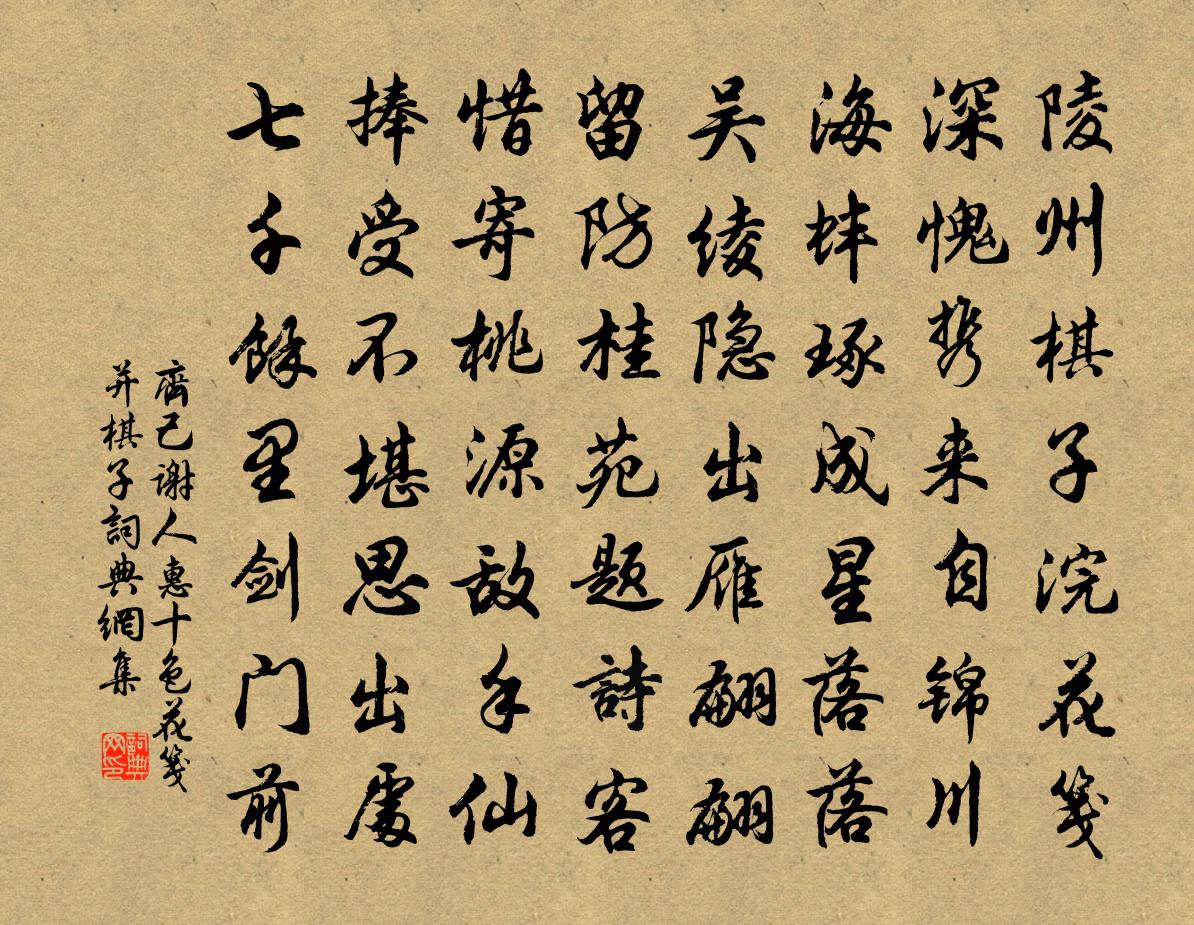 陵州棋子浣花箋
深愧携来自锦川
海蚌琢成星落落
吴绫隐出雁翩翩
留防桂苑题詩客
惜寄桃源敌手仙
捧受不堪思出處
七千餘里剑门前
齊己谢人惠十色花箋
并棋子詞典網集
詞典网印